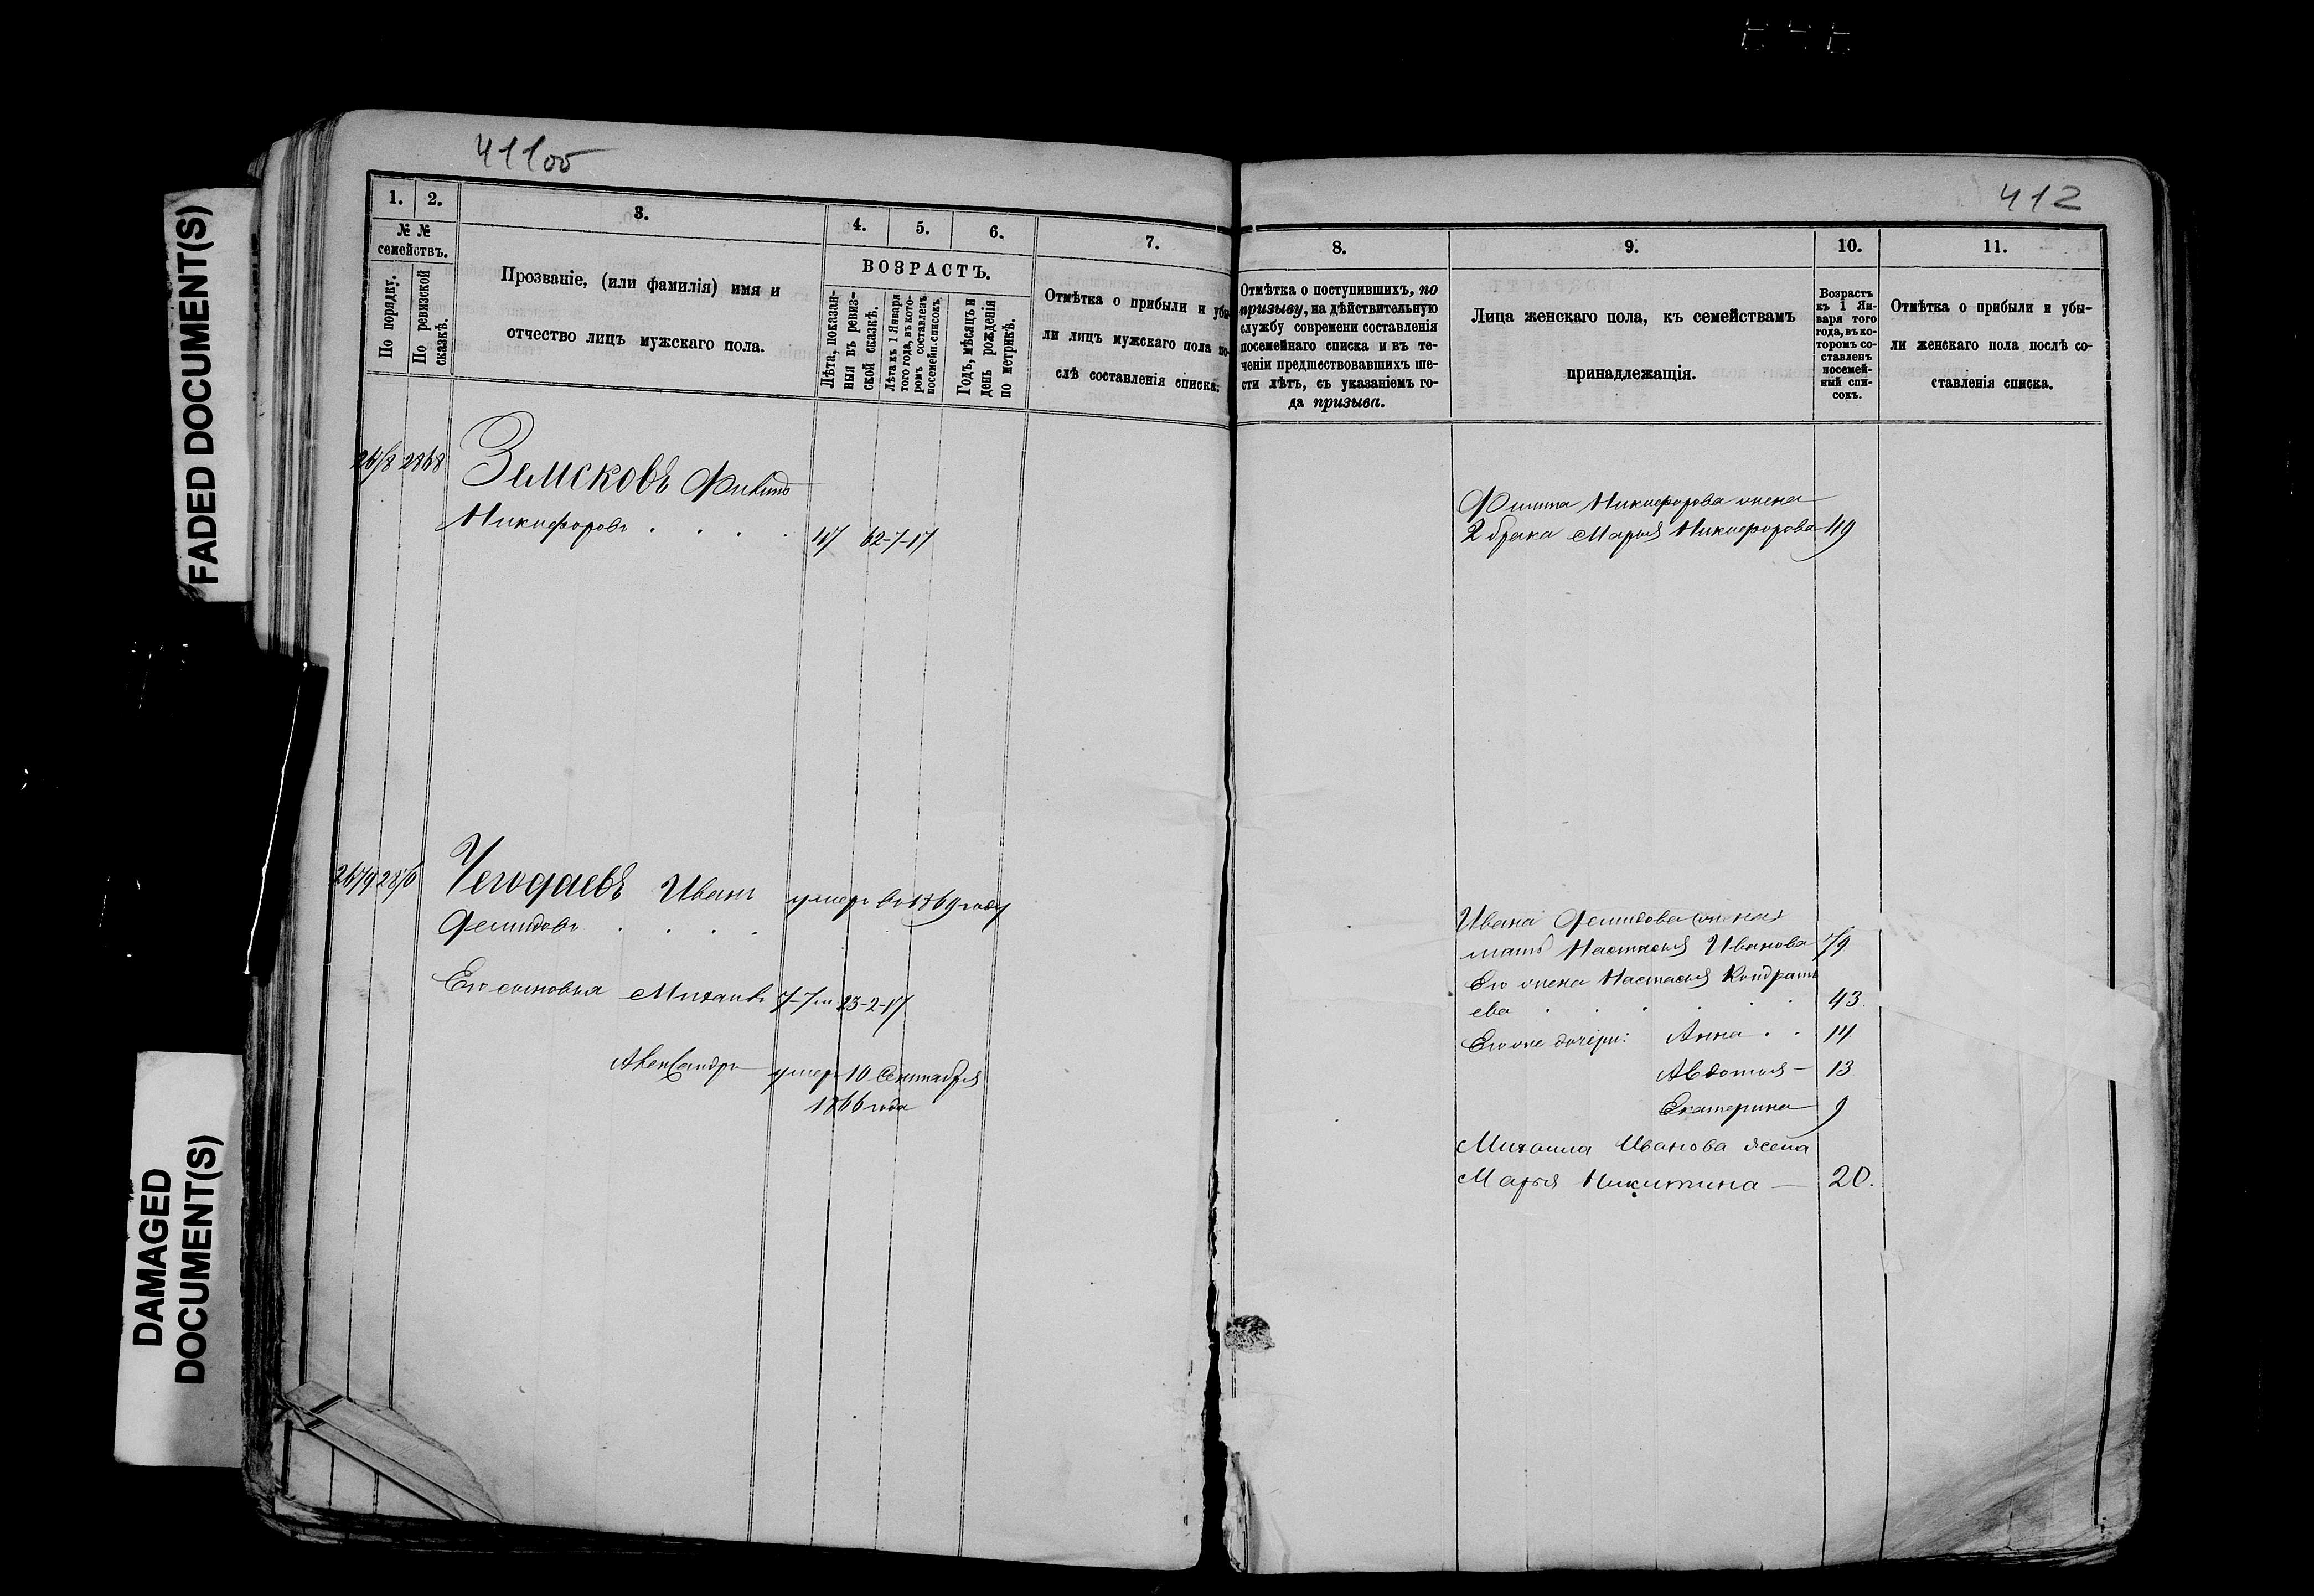 FADED DOCUMENT(S)
DAMAGED
DOCUMENT(S)
411об
1. 2. 3. 4. 5. 6. 7.
№ №
семействъ.
По порядку.
По ревизской
сказкѣ.
Прозваніе, (или фамилія) имя и
отчество лицъ мужскаго пола.
ВОЗРАСТЪ.
Лѣта, показан-
ныя въ ревиз-
ской сказкѣ.
Лѣта къ 1 Января
того года, въ кото-
ромъ составленъ
посемейн. списокъ.
Годъ, мѣсяцъ и
день рожденія
по метрикѣ.
Отмѣтка о прибыли и убы-
ли лицъ мужскаго пола по-
слѣ составленія списка.
2868
Земсковъ
Никифоровъ . . . . 47 62-7-17
Чегодаевъ Иванъ умеръ въ 1869 году
Демидовъ . . . .
Его сыновья Михаилъ 7-7м 23-2-17
Александръ умеръ 10 Сентября
1866 года
412
8. 9. 10. 11.
Отмѣтка о поступившихъ, по
призыву, на дѣйствительную
службу современи составленія
посемейнаго списка и въ те-
ченіи предшествовавшихъ ше-
сти лѣтъ, съ указаніемъ го-
да призыва.
Лица женскаго пола, къ семействамъ
принадлежащія.
Возрастъ
къ 1 Ян-
варя того
года, въ ко-
торомъ со-
ставленъ
посемей-
ный спи-
сокъ.
Отмѣтка о прибыли и убы-
ли женскаго пола послѣ со-
ставленія списка.
Никифорова жена
2 брака Марья Никифорова 49
Ивана Демидова
мать Настасья Иванова 79
Его жена Настасья Кондрать
ева . . . . . 43.
Его же дочери: Анна . . 14
Авдотья - 13
Екатерина 9
Михаила Иванова жена
Марья Никитина - 20.